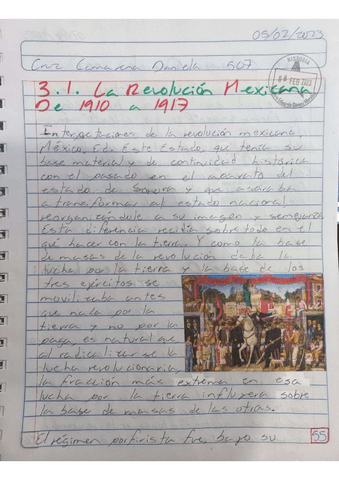 05/02/2023
Cruz Camarena Daniela 507
HISTORIA
08 FEB 2023
3.1. La Revolución Mexicana
De 1910 a 1917
Interpretaciones de la revolución mexicana,
México, Ed. Este Estado que tenía su
base material y de continuidad histórica
con el pasado en el aparato del
estado de Sonora y que aspiraba
a transformar al estado nacional
reorganizándole a su imagen y semejanza
Esta diferencia recidía sobre todo en el
qué hacer con la tierra. Y como la base
de masas de la revolución daba la
lucha por la tierra y la base de los
tres ejércitos se
movilizaba antes
que nada por la
tierra y no por la
paga, es natural que
al radicalizarse la
lucha revolucionaria,
la fracción más extrema en esa
lucha por la tierra influyera sobre
la base de masas de las otras.
El régimen porfirista fue, bajo su
55